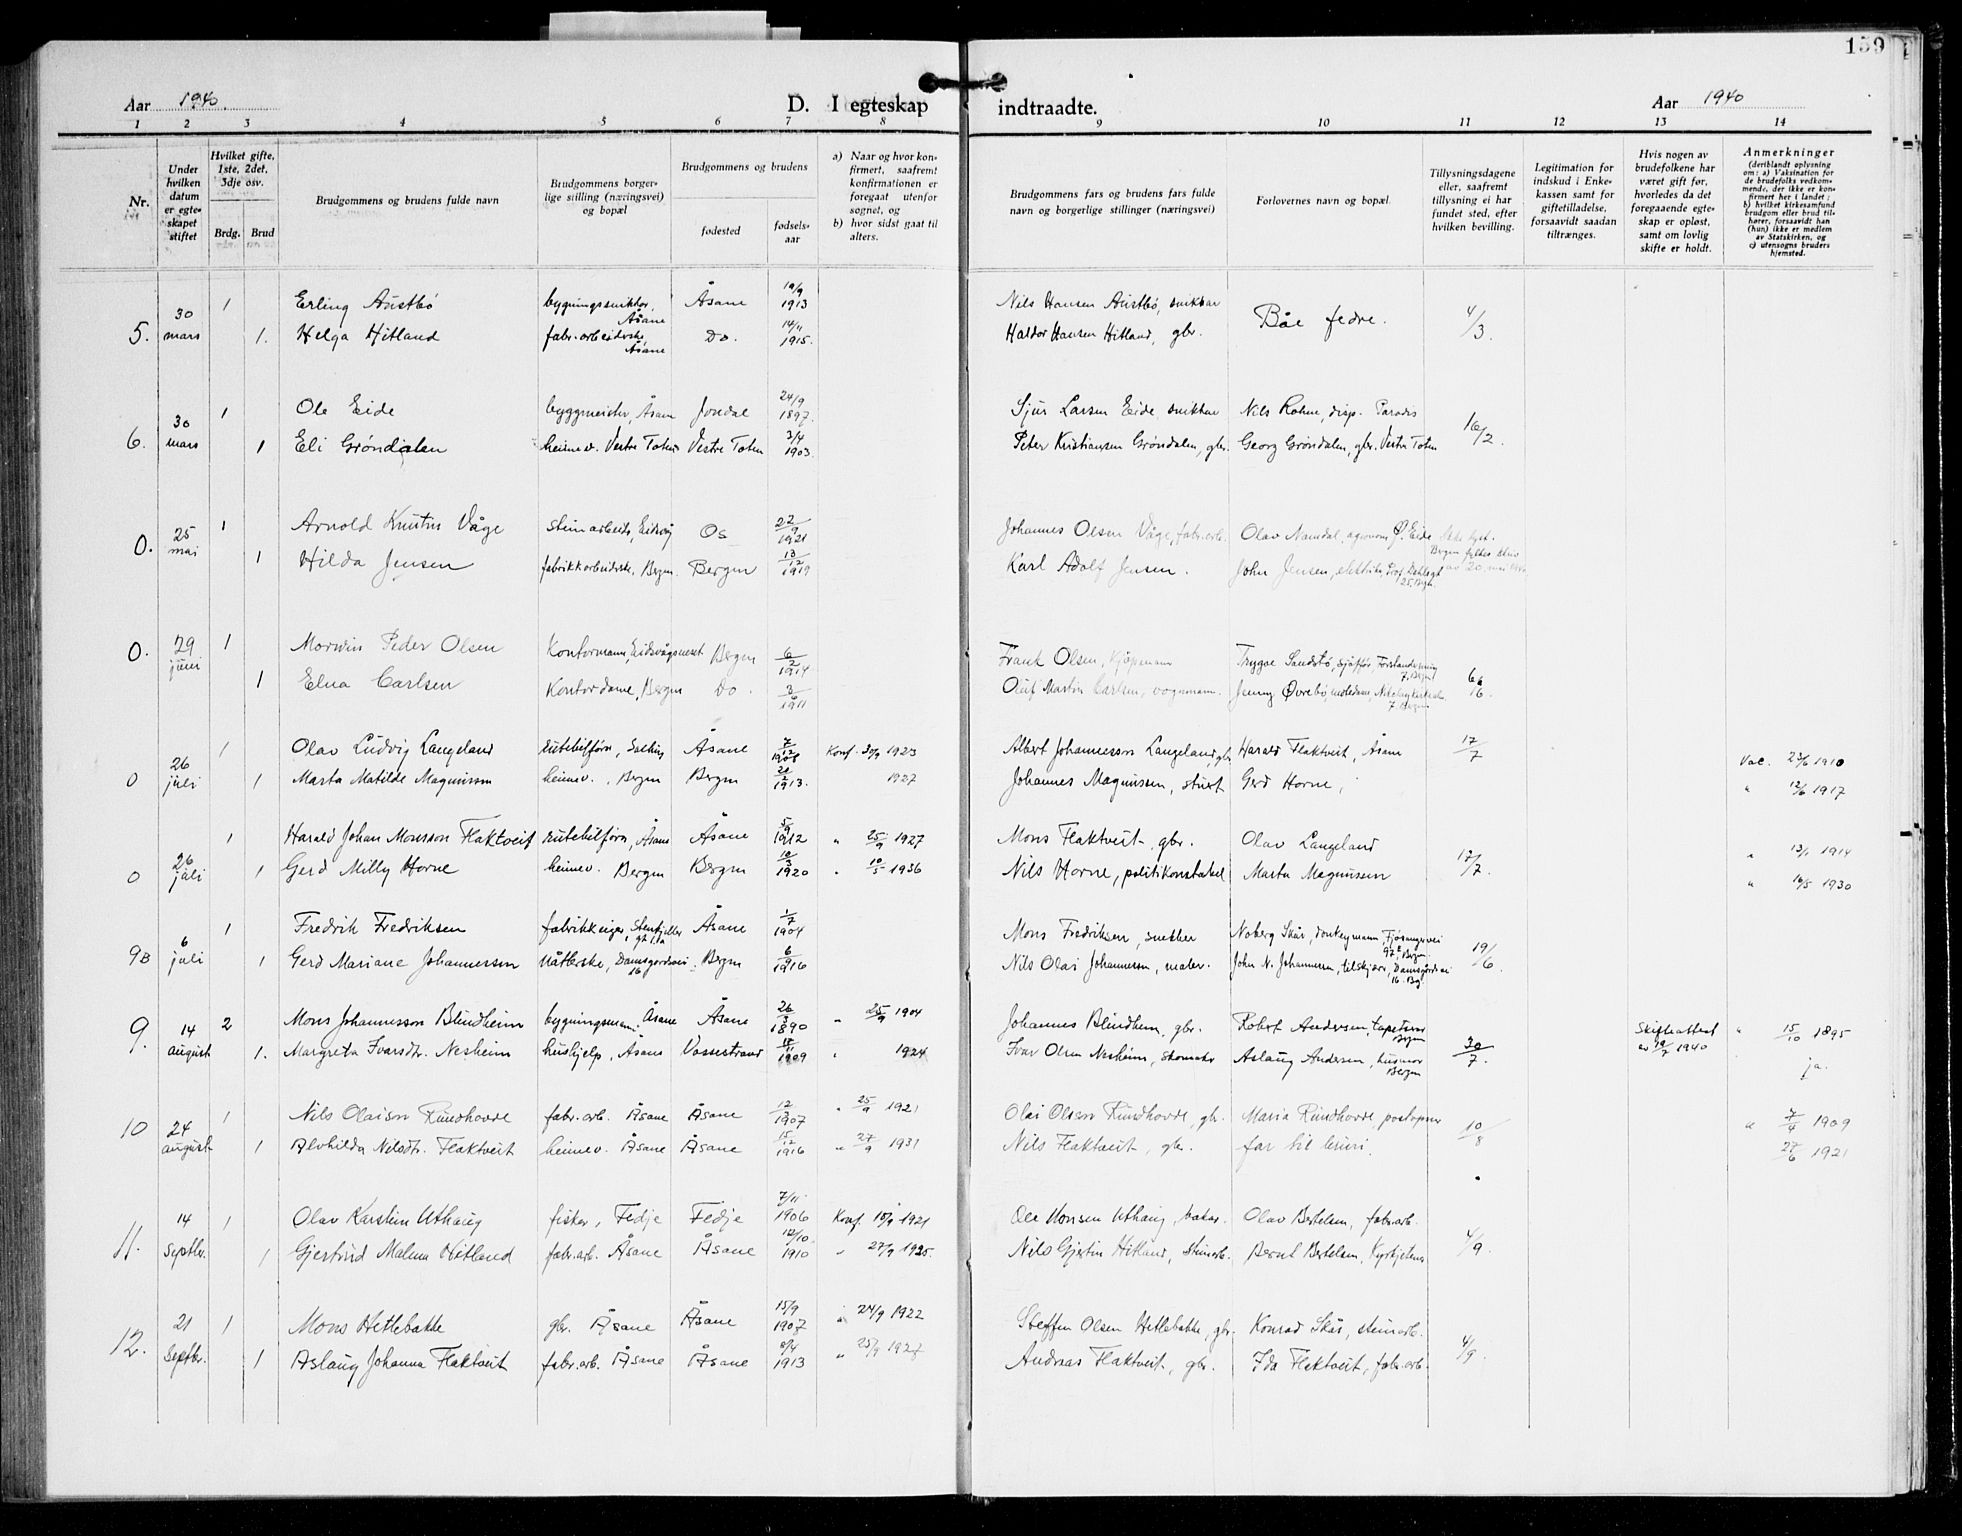 159
Aar 1940.
D. I egteskap indtraadte.
Aar 1940
1 2 3 4 5 6 7 8 9 10 11 12 13 14
Nr.
Under hvilken datum er egteskapet stiftet
Hvilket gifte, 1ste, 2det, 3dje osv.
Brdg. Brud
Brudgommens og brudens fulde navn
Brudgommens borgerlige stilling (næringsvei) og bopæl
Brudgommens og brudens
fødested
fødselsaar
a) Naar og hvor konfirmert, saafremt konfirmationen er foregaat utenfor sognet, og
b) hvor sidst gaat til alters.
Brudgommens fars og brudens fars fulde navn og borgerlige stillinger (næringsvei)
Forlovernes navn og bopæl.
Tillysningsdagene eller, saafremt tillysning ei har fundet sted, efter hvilken bevilling.
Legitimation for indskud i Enkekassen samt for giftetilladelse, forsaavidt saadan tiltrænges.
Hvis nogen av brudefolkene har været gift før, hvorledes da det foregaaende egteskap er opløst, samt om lovlig skifte er holdt.
Anmerkninger
(deriblandt oplysning om: a) Vaksination for de brudefolks vedkommende, der ikke er konfirmert her i landet; b) hvilket kirkesamfund brudgom eller brud tilhører, forsaavidt han (hun) ikke er medlem av Statskirken, og c) utensogns bruders hjemsted.
5. 30 mars 1 Erling Austbø bygningssnikker, Åsane Åsane 19/9 1913 Nils Hansen Austbø, snikkar Båe fedre. 4/3.
1. Helga Hitland fabr.arbeiderske Åsane Do. 14/11 1915. Haldor Hansen Hitland, gbr.
6. 30 mars 1 Ole Eide byggmeister, Åsane Jondal 24/9 1897. Sjur Larsen Eide, snikkar Nils Rohm, disp. Paradis 16/2
1 Eli Grøndalen heimev. Vestre Toten Vestre Toten 3/4 1903. Peter Kristiansen Grøndalen, gbr. Georg Grøndalen, gbr. Vestre Toten
0. 25 mai 1 Arnold Knutsn Våge steinarbeider, Eidsvåg Os 22/9 1921 Johannes Olsen Våge, fabr.arb. Olav Namdal, agronom Ø. Eide
1 Hilda Jensen fabrikkarbeiderske, Bergen. Bergen 13/12 1919 Karl Adolf Jensen. John Jensen, elektriker, Prof. Dahlsgt 25, Bergen av 20. mai
0. 29 juni 1 Peder Olsen Kontormann, Eidsvågsneset Bergen 6/2 1914 Frank Olsen, Kjøpmann Trygve Sandstø, sjåfør, 7, Bergen 6/6.
1 Elna Carlsen Kontordame, Bergen Do. 3/6 1911 Oluf Martin Carlsen, vognmann. Jenny Øvrebø, motedame, 7, Bergen
0 26 juli 1 Olav Ludvig Langeland rutebilfører, Åsane 7/12 1908 Konf. 30/9 1923 Albert Johannesson Langeland, gbr Harald Flaktveit, Åsane 17/7 Vac. 23/6 1910
1 Marta Matilde Magnussen heimev., Bergen Bergen 1913. 1927 Johannes Magnussen, stuert Gerd Horne, " 12/6 1917
0 26 juli 1 Harald Johan Monsson Flaktveit rutebilfører, Åsane Åsane 5/9 1912 " 25/9 1927 Mons Flaktveit, gbr. Olav Langeland 17/7. " 1914
1 Gerd Milly Horne heimev. Bergen Bergen 10/3 1920 " 10/5 1936 Nils Horne, politikonstabel Marta Magnussen " 16/5 1930
9B 6 juli 1 Fredrik Fredriksen fabrikkeiger, Stenkjeller gt. 1a Åsane 1/7 1904 Mons Fredriksen, snekker Noberg Skår, donkeymann, Fjøsangervei 97, Bergen 19/6.
1 Gerd Mariane Johannessen Nåtlerske, Damsgårdsvei 16 Bergen 6/9 1916 Nils Olai Johannessen, maler. John N. Johannessen, tilskjærer, Damsgårdsvei 16. Bg.
9. 14 august 2 Mons Johannesson Blindheim bygningsmann. Åsane Åsane 26/3 1890 " 25/9 1904 Johannes Blindheim, gbr. Robert Andersen, tapetserer Bergen 30/7. Skifteattest av 19/7 1940 " 15/10 1895
1. Margreta Ivarsdtr. Nesheim hushjelp, Åsane Vossestrand 1909 " 1924 Ivar Olsen Nesheim, skomaker Aslaug Andersen, husmor Bergen ja.
10 24 august 1 Nils Olaison Rundhovde fabr.arb. Åsane Åsane 12/3 1907 " 25/9 1921 Olai Olsson Rundhovde, gbr. Maria Rundhovde, postopner 10/8 " 7/4 1909
1 Alvhilda Nilsdtr. Flaktveit heimev. Åsane Åsane 15/12 1916 " 27/9 1931 Nils Flaktveit, gbr. far til bruri. 27/6 1921
11. 14 septbr. 1 Olav Karstein Uthaug fisker, Fedje Fedje 7/11 1906 Konf. 18/9 1921 Ole Monsen Uthaug, baker. Olav Bertelsen, fabr.arb. 4/9.
1 Gjertrud Malena Hitland fabr.arb. Åsane Åsane 12/10 1910 " 27/9 1925. Nils Gjertin Hitland, steinarb. Bernt Bertelsen, Kyrkjetener
12. 21 septbr. 1 Mons Hetlebakke gbr. Åsane Åsane 15/9 1907 " 24/9 1922 Steffen Olsen Hetlebakke, gbr. Konrad Skår, steinarb. 4/9.
1 Aslaug Johanna Flaktveit fabr.arb. Åsane Åsane 8/4 1913 " 25/9 1927 Andreas Flaktveit, gbr. Ida Flaktveit, fabr.arb.